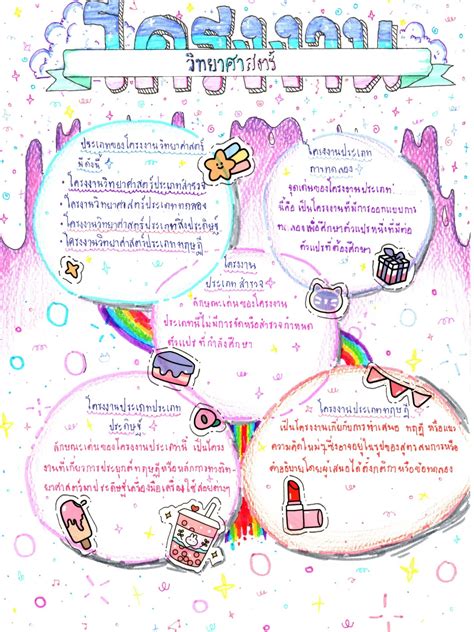 โครงงาน
วิทยาศาสตร์
ประเภทของโครงงานวิทยาศาสตร์
มีดังนี้
โครงงานวิทยาศาสตร์ประเภทสำรวจ
โครงงานวิทยาศาสตร์ประเภททดลอง
โครงงานวิทยาศาสตร์ประเภทสิ่งประดิษฐ์
โครงงานวิทยาศาสตร์ประเภททฤษฎี
โครงงานประเภท
การทดลอง
จุดเด่นของโครงงานประเภท
นี้คือ เป็นโครงงานที่มีการออกแบบการ
ทดลองเพื่อศึกษาตัวแปรหนึ่งที่มีต่อ
ตัวแปรที่ต้องศึกษา
โครงงาน
ประเภท สำรวจ
ลักษณะเด่นของโครงงาน
ประเภทนี้ไม่มีการจัดหรือสำรวจกำหนด
ตัวแปรที่กำลังศึกษา
โครงงานประเภทประเภท
ประดิษฐ์
ลักษณะเด่นของโครงงานประเภทนี้ เป็นโครง
งานที่เกี่ยวการประยุกต์ทฤษฎีหรือหลักการทางวิท
ยาศาสตร์มาประดิษฐ์เครื่องมือเครื่องใช้สอยต่างๆ
โครงงานประเภททฤษฎี
เป็นโครงงานเกี่ยวกับการนำเสนอ ทฤษฎี หรือแนว
ความคิดใหม่ๆซึ่งอาจอยู่ในรูปของสูตรสมการหรือ
คำอธิบายโดยผู้เสนอได้ตั้งกติกาหรือข้อตกลง